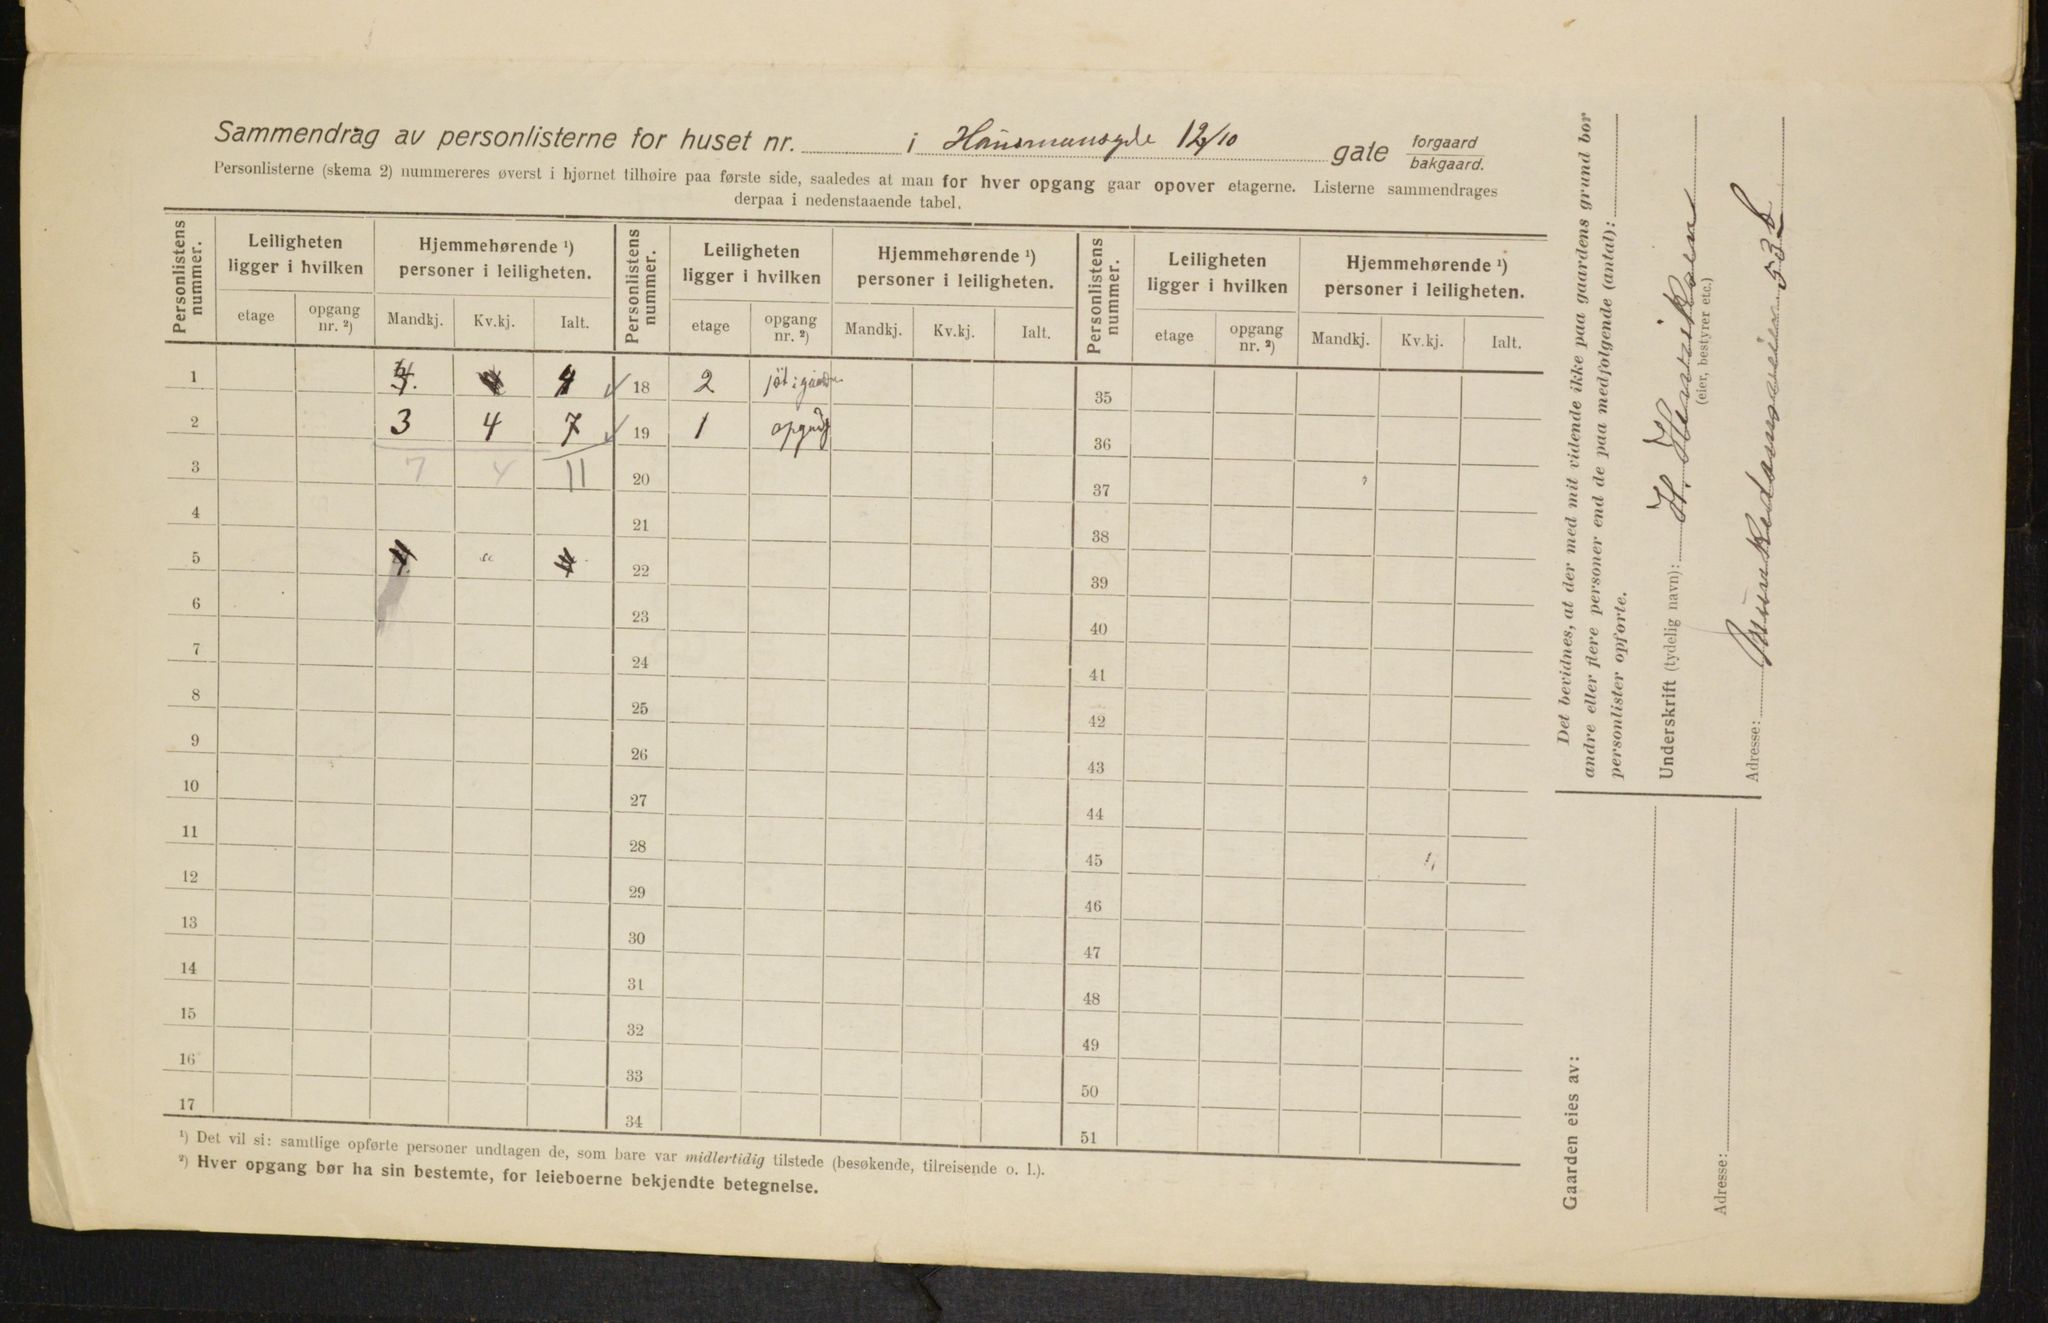 Sammendrag av personlisterne for huset nr. i Hausmansgde 12/10 gate forgaard bakgaard.
Personlisterne (skema 2) nummereres øverst i hjørnet tilhøire paa første side, saaledes at man for hver opgang gaar opover etagerne. Listerne sammendrages
derpaa i nedenstaaende tabel.
Personlistens nummer. Leiligheten ligger i hvilken Hjemmehørende ¹) personer i leiligheten. Personlistens nummer. Leiligheten ligger i hvilken Hjemmehørende ¹) personer i leiligheten. Personlistens nummer. Leiligheten ligger i hvilken Hjemmehørende ¹) personer i leiligheten.
etage opgang nr. ²) Mandkj. Kv.kj. Ialt. etage opgang nr. ²) Mandkj. Kv.kj. Ialt. etage opgang nr. ²) Mandkj. Kv.kj. Ialt.
1 4 4 18 2 35
2 3 4 7 19 1 36
3 7 4 11 20 37
4 21 38
5 4 " 4 22 39
6 23 40
7 24 41
8 25 42
9 26 43
10 27 44
11 28 45
12 29 46
13 30 47
14 31 48
15 32 49
16 33 50
17 34 51
¹) Det vil si: samtlige opførte personer undtagen de, som bare var midlertidig tilstede (besøkende, tilreisende o. l.).
²) Hver opgang bør ha sin bestemte, for leieboerne bekjendte betegnelse.
Det bevidnes, at der med mit vidende ikke paa gaardens grund bor
andre eller flere personer end de paa medfølgende (antal):
personlister opførte.
Underskrift (tydelig navn): H. Henriksen
(eier, bestyrer etc.)
Adresse: 53b
Gaarden eies av:
Adresse: